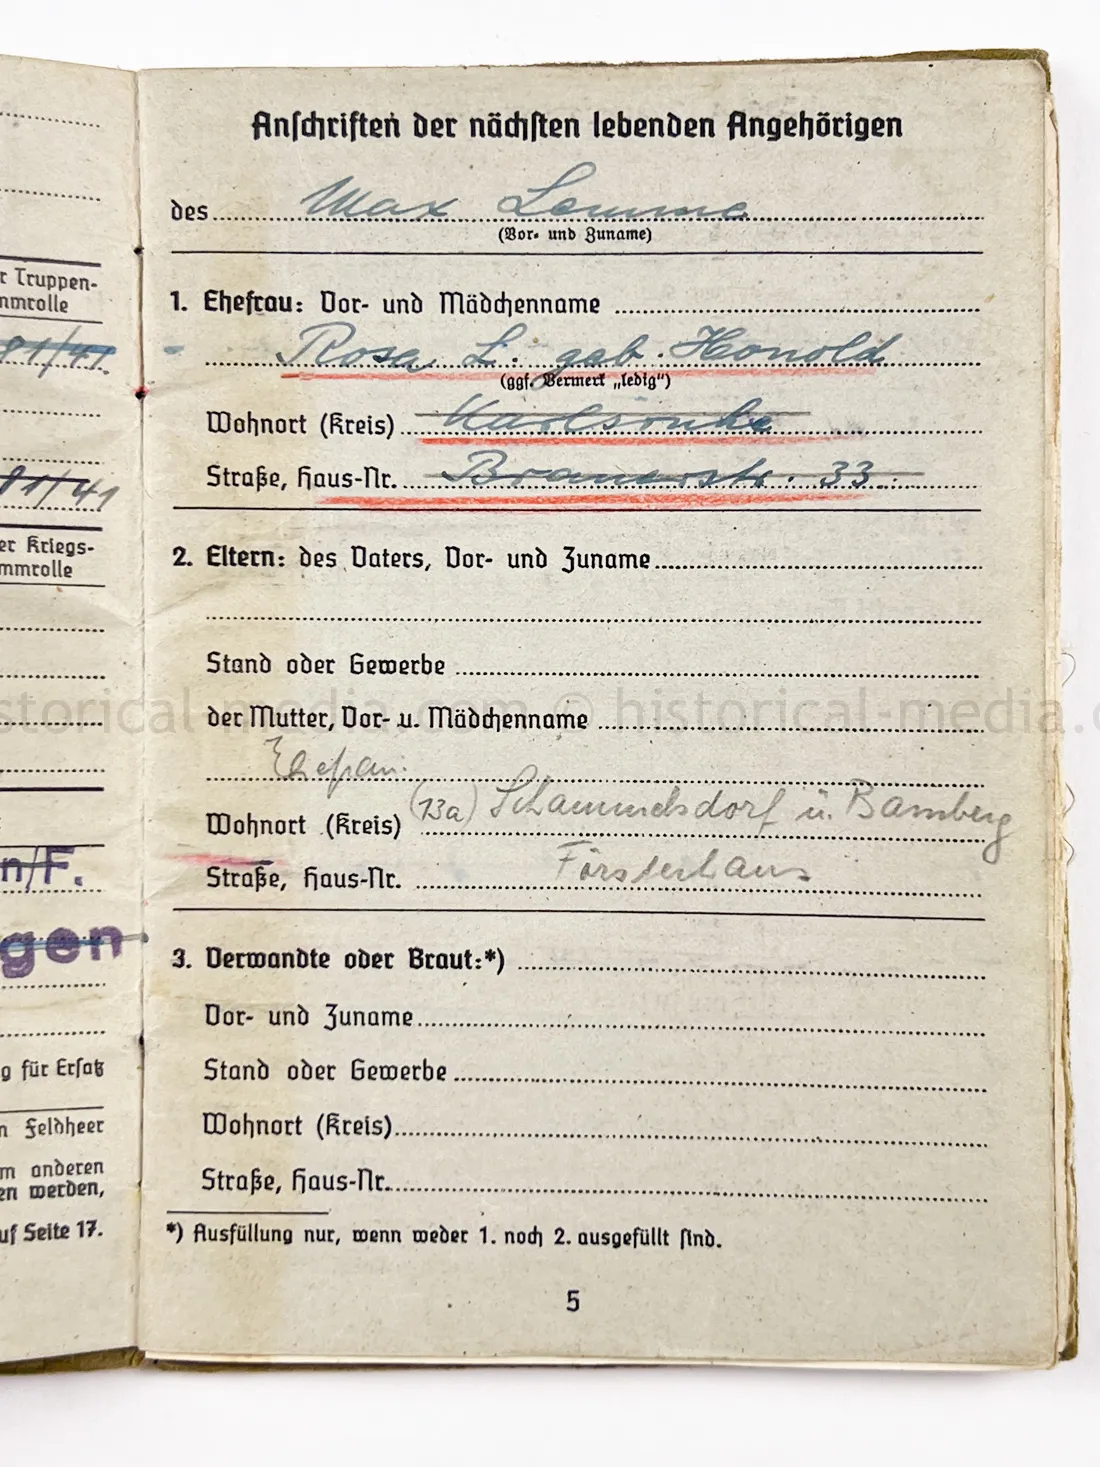 r Truppen-
mmrolle
81/41.
81/41
er Kriegs-
mmrolle
n/F.
gen
g für Ersatz
n Feldheer
m anderen
en werden,
uf Seite 17.
Anschriften der nächsten lebenden Angehörigen
des Max Lemme
(Vor- und Zuname)
1. Ehefrau: Vor- und Mädchenname
Rosa L. geb. Honold
(ggf. Vermerk „ledig")
Wohnort (Kreis) Karlsruhe
Straße, Haus-Nr. Branerstr. 33
2. Eltern: des Vaters, Vor- und Zuname
Stand oder Gewerbe
der Mutter, Vor- u. Mädchenname
Ehefrau:
Wohnort (Kreis) (13a) Schammelsdorf ü. Bamberg
Straße, Haus-Nr. Försterhaus
3. Verwandte oder Braut:*)
Vor- und Zuname
Stand oder Gewerbe
Wohnort (Kreis)
Straße, Haus-Nr.
*) Ausfüllung nur, wenn weder 1. noch 2. ausgefüllt sind.
5
storical-media.com © historical-media.c